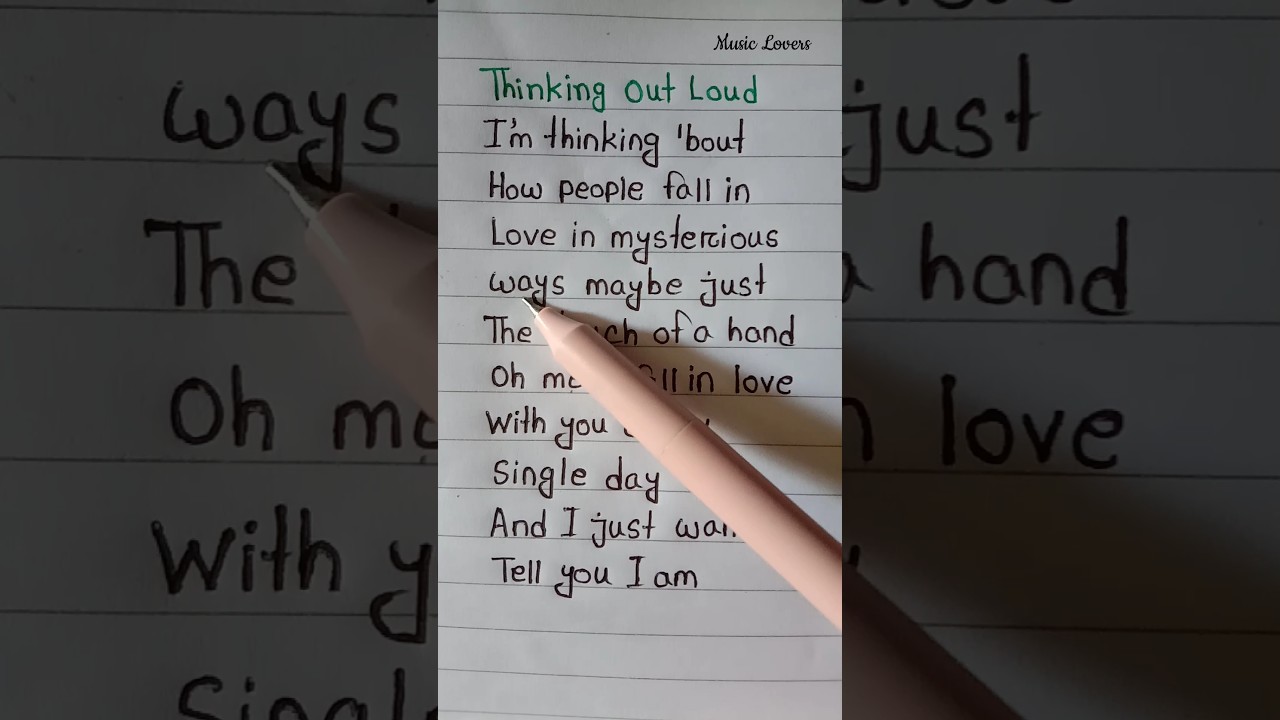 Music Lovers
Thinking out Loud
I'm thinking 'bout
How people fall in
Love in mysterious
ways maybe just
The of a hand
Oh in love
With you
Single day
And I just
Tell you I am